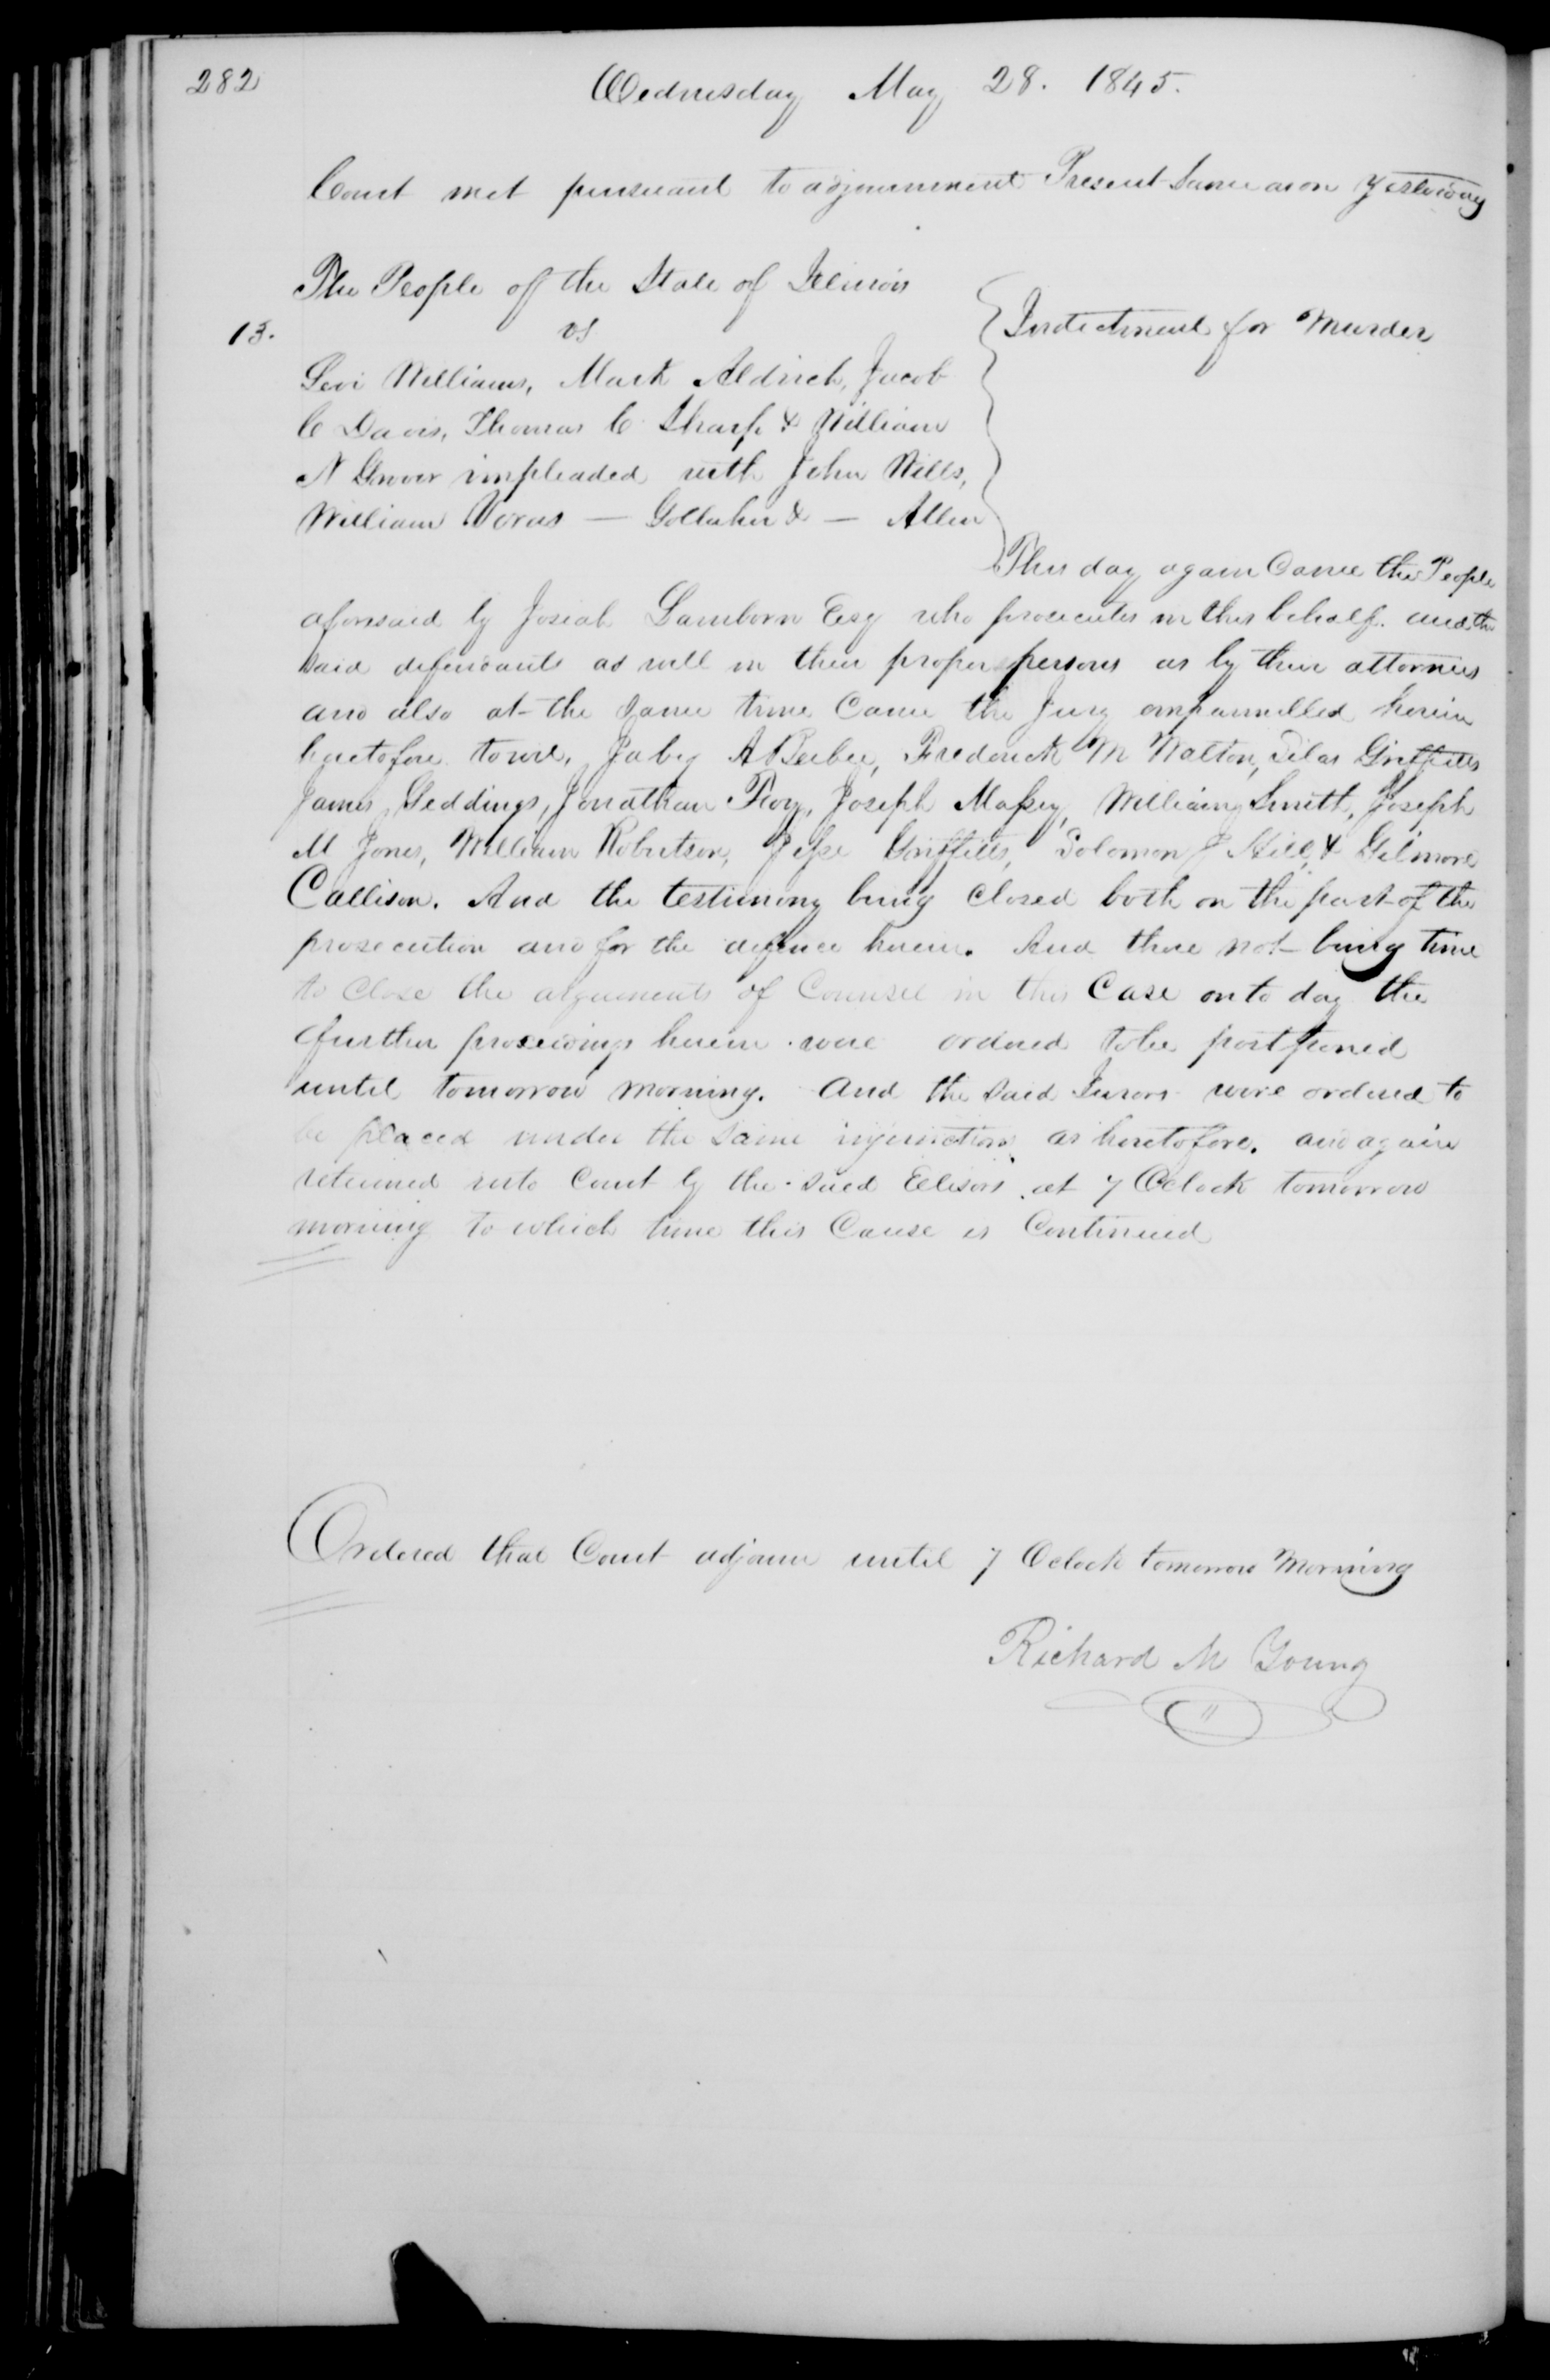 282
Wednesday May 28. 1845.
Court met pursuant to adjournment Present Same as on yesterday
The People of the State of Illinois
13.
vs
Indictment for Murder
Levi Williams, Mark Aldrich, Jacob
C Davis, Thomas C Sharp & William
N Grover impleaded with John Wills,
William Voras — Gollaher & — Allen
This day again Came the People
aforesaid by Josiah Lamborn Esq who prosecutes in this behalf. and the
said defendants as well in their proper persons as by their attornies
and also at the same time Came the Jury empannelled herein
heretofore towit, Jabez A Beebee, Frederick M Walton, Silas Griffitts
James Geddings, Jonathan Foy, Joseph Massey, William Smith, Joseph
M Jones, William Robertson, Jesse Griffitts, Solomon J Hill, & Gilmore
Callison. And the testimony being closed both on the part of the
prosecution and for the defence herein. And there not being time
to close the arguments of Counsel in this Case on to day the
further proceedings herein were ordered to be postponed
until tomorrow morning. And the said Jurors were ordered to
be placed under the same injunctions as heretofore. and again
returned into Court by the said Elisors at 7 Oclock tomorrow
morning to which time this Cause is Continued
Ordered that Court adjourn until 7 Oclock tomorrow Morning
Richard M Young